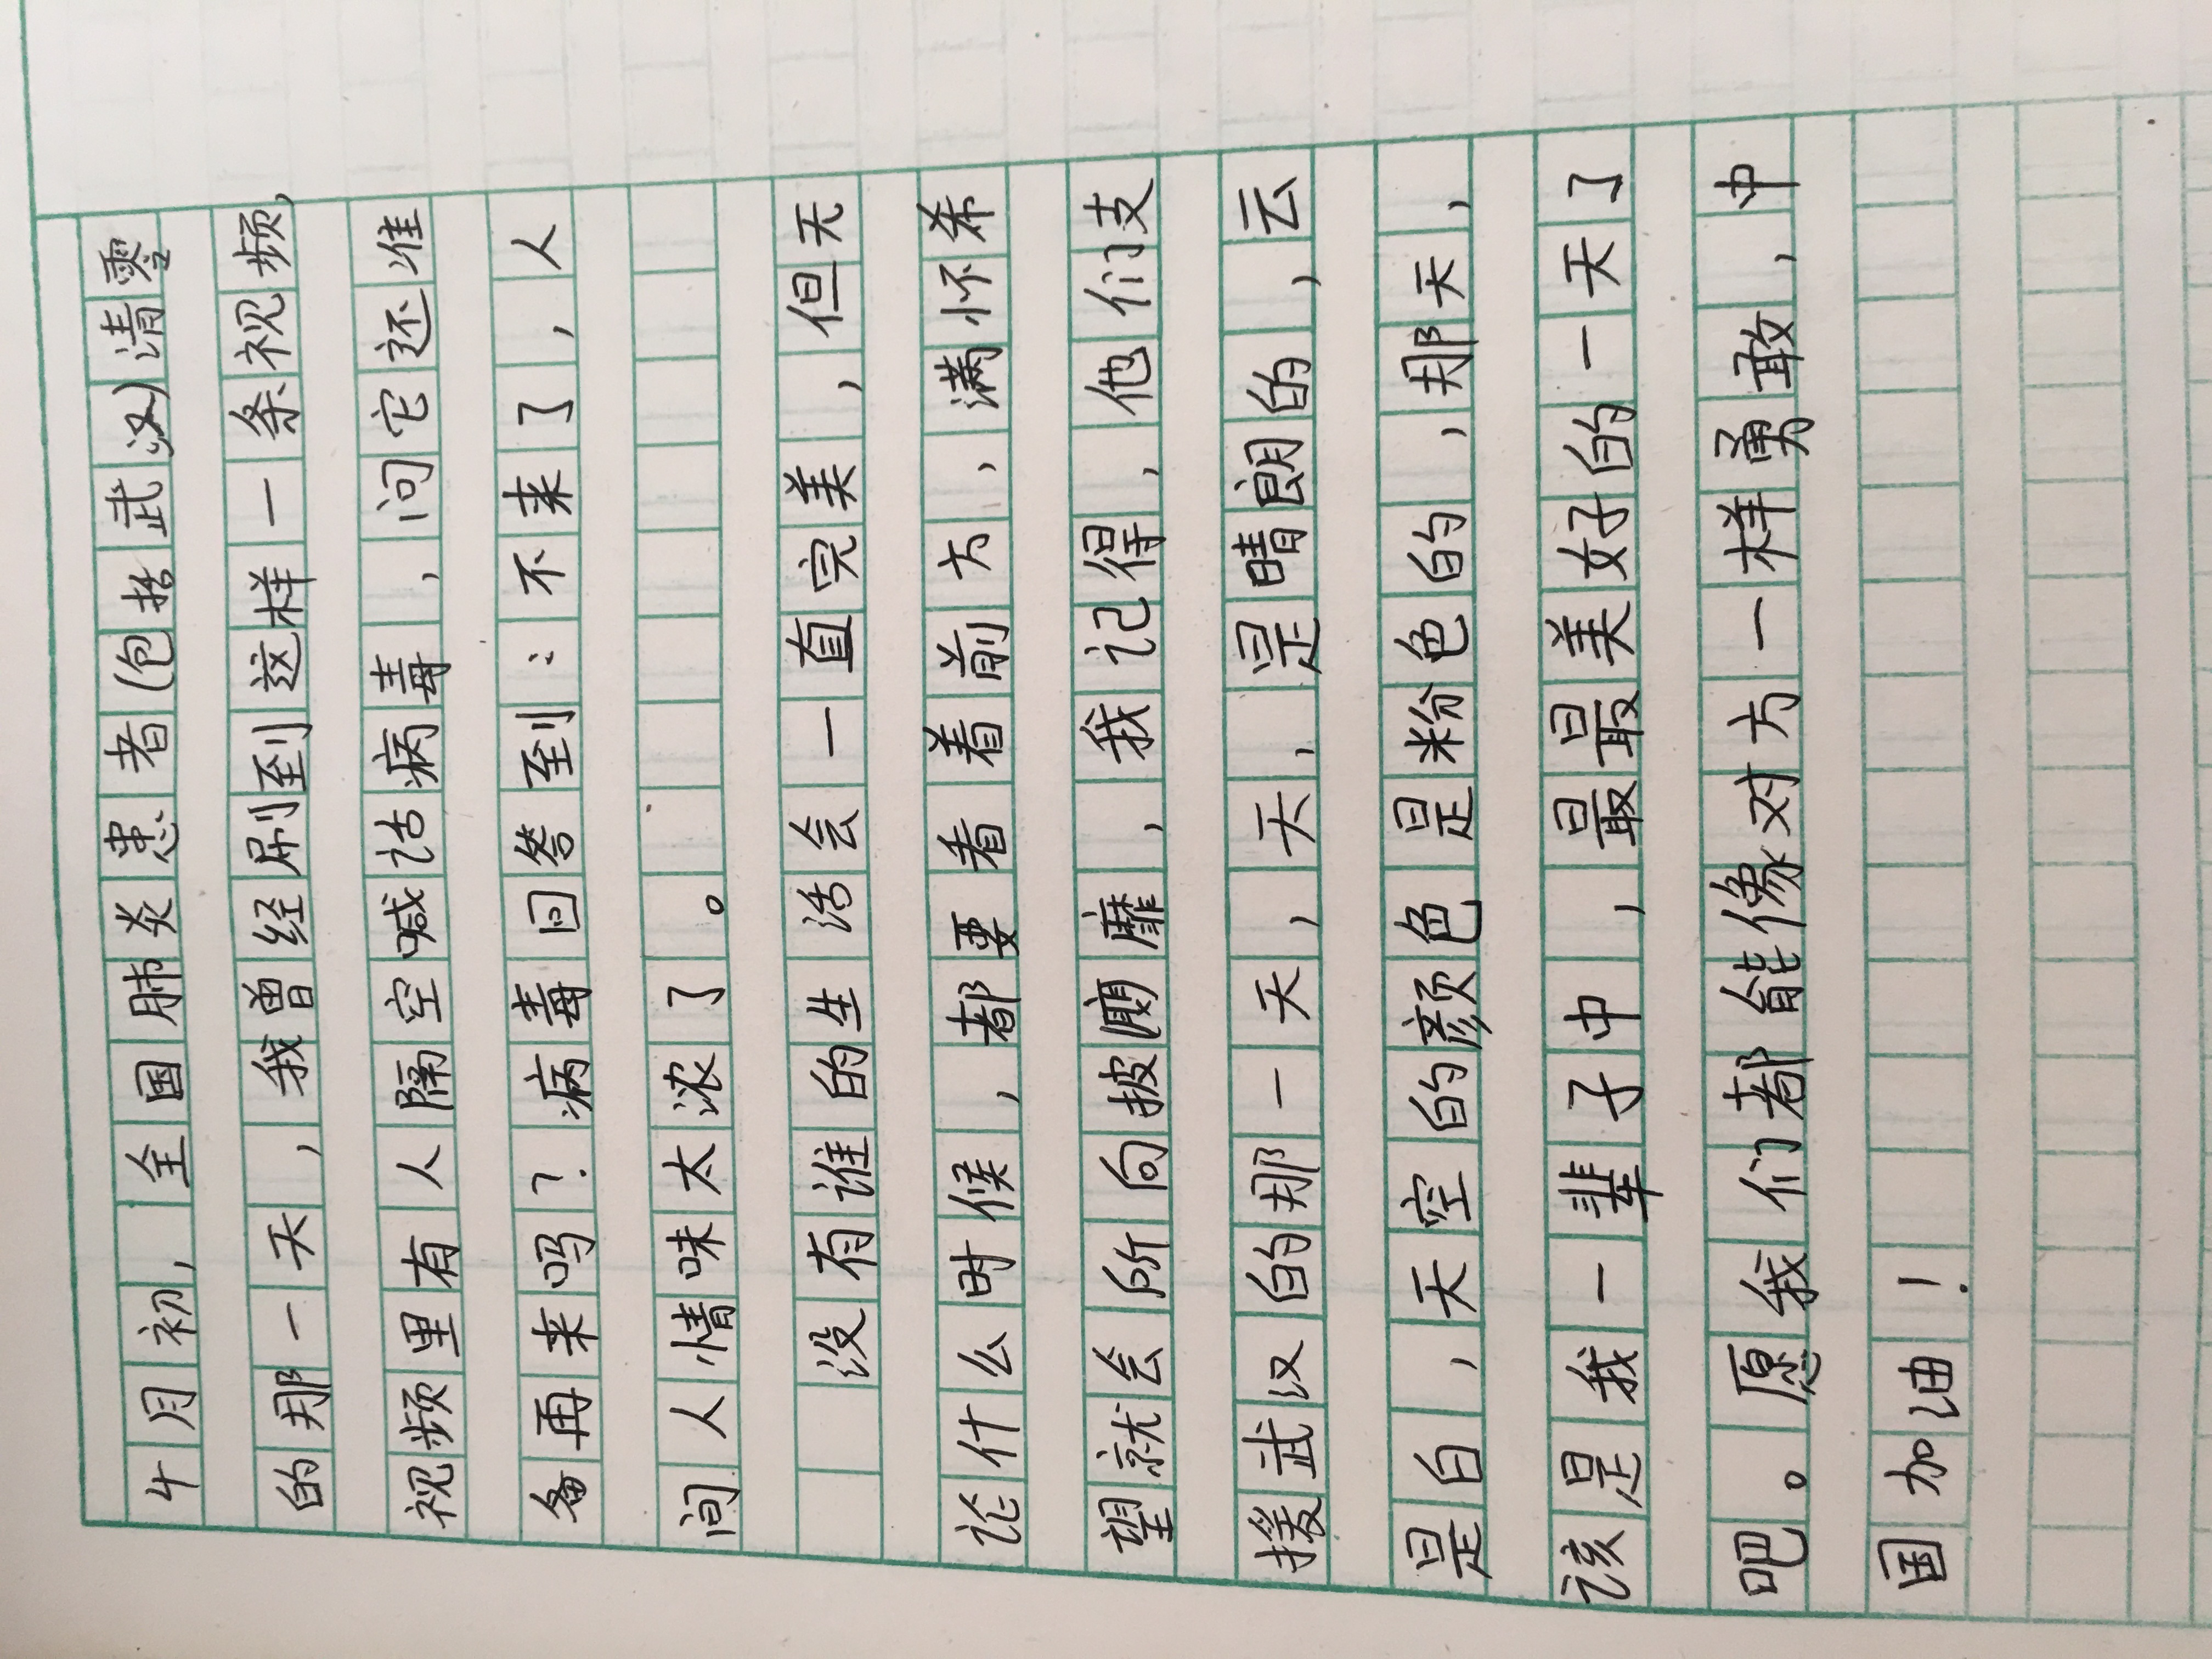 4月初，全国肺炎患者(包括武汉)清零
的那一天，我曾经刷到这样一条视频，
视频里有人隔空喊话病毒，问它还准
备再来吗？病毒回答到：不来了，人
间人情味太浓了。
没有谁的生活会一直完美，但无
论什么时候，都要看着前方，满怀希
望就会所向披靡，我记得，他们支
援武汉的那一天，天，是晴朗的，云
是白，天空的颜色是粉色的，那天，
该是我一辈子中，最最美好的一天了
吧。愿我们都能像对方一样勇敢，中
国加油！